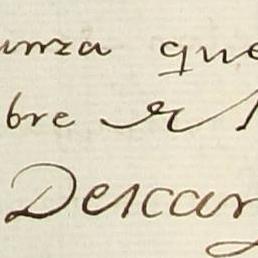 unza que
bre el
Descar